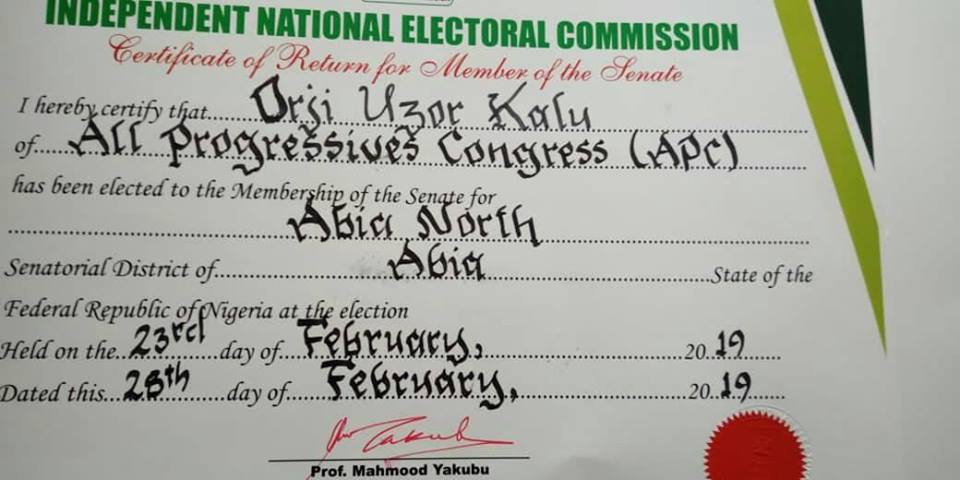 INDEPENDENT NATIONAL ELECTORAL COMMISSION
Certificate of Return for Member of the Senate
I hereby certify that.....Orji Uzor Kalu
of....All Progressives Congress (APC)
has been elected to the Membership of the Senate for
Abia North
Senatorial District of..........Abia..........State of the
Federal Republic of Nigeria at the election
Held on the..23rd..day of...February,..........20..19....
Dated this...28th...day of...February,..........20..19....
Prof. Mahmood Yakubu